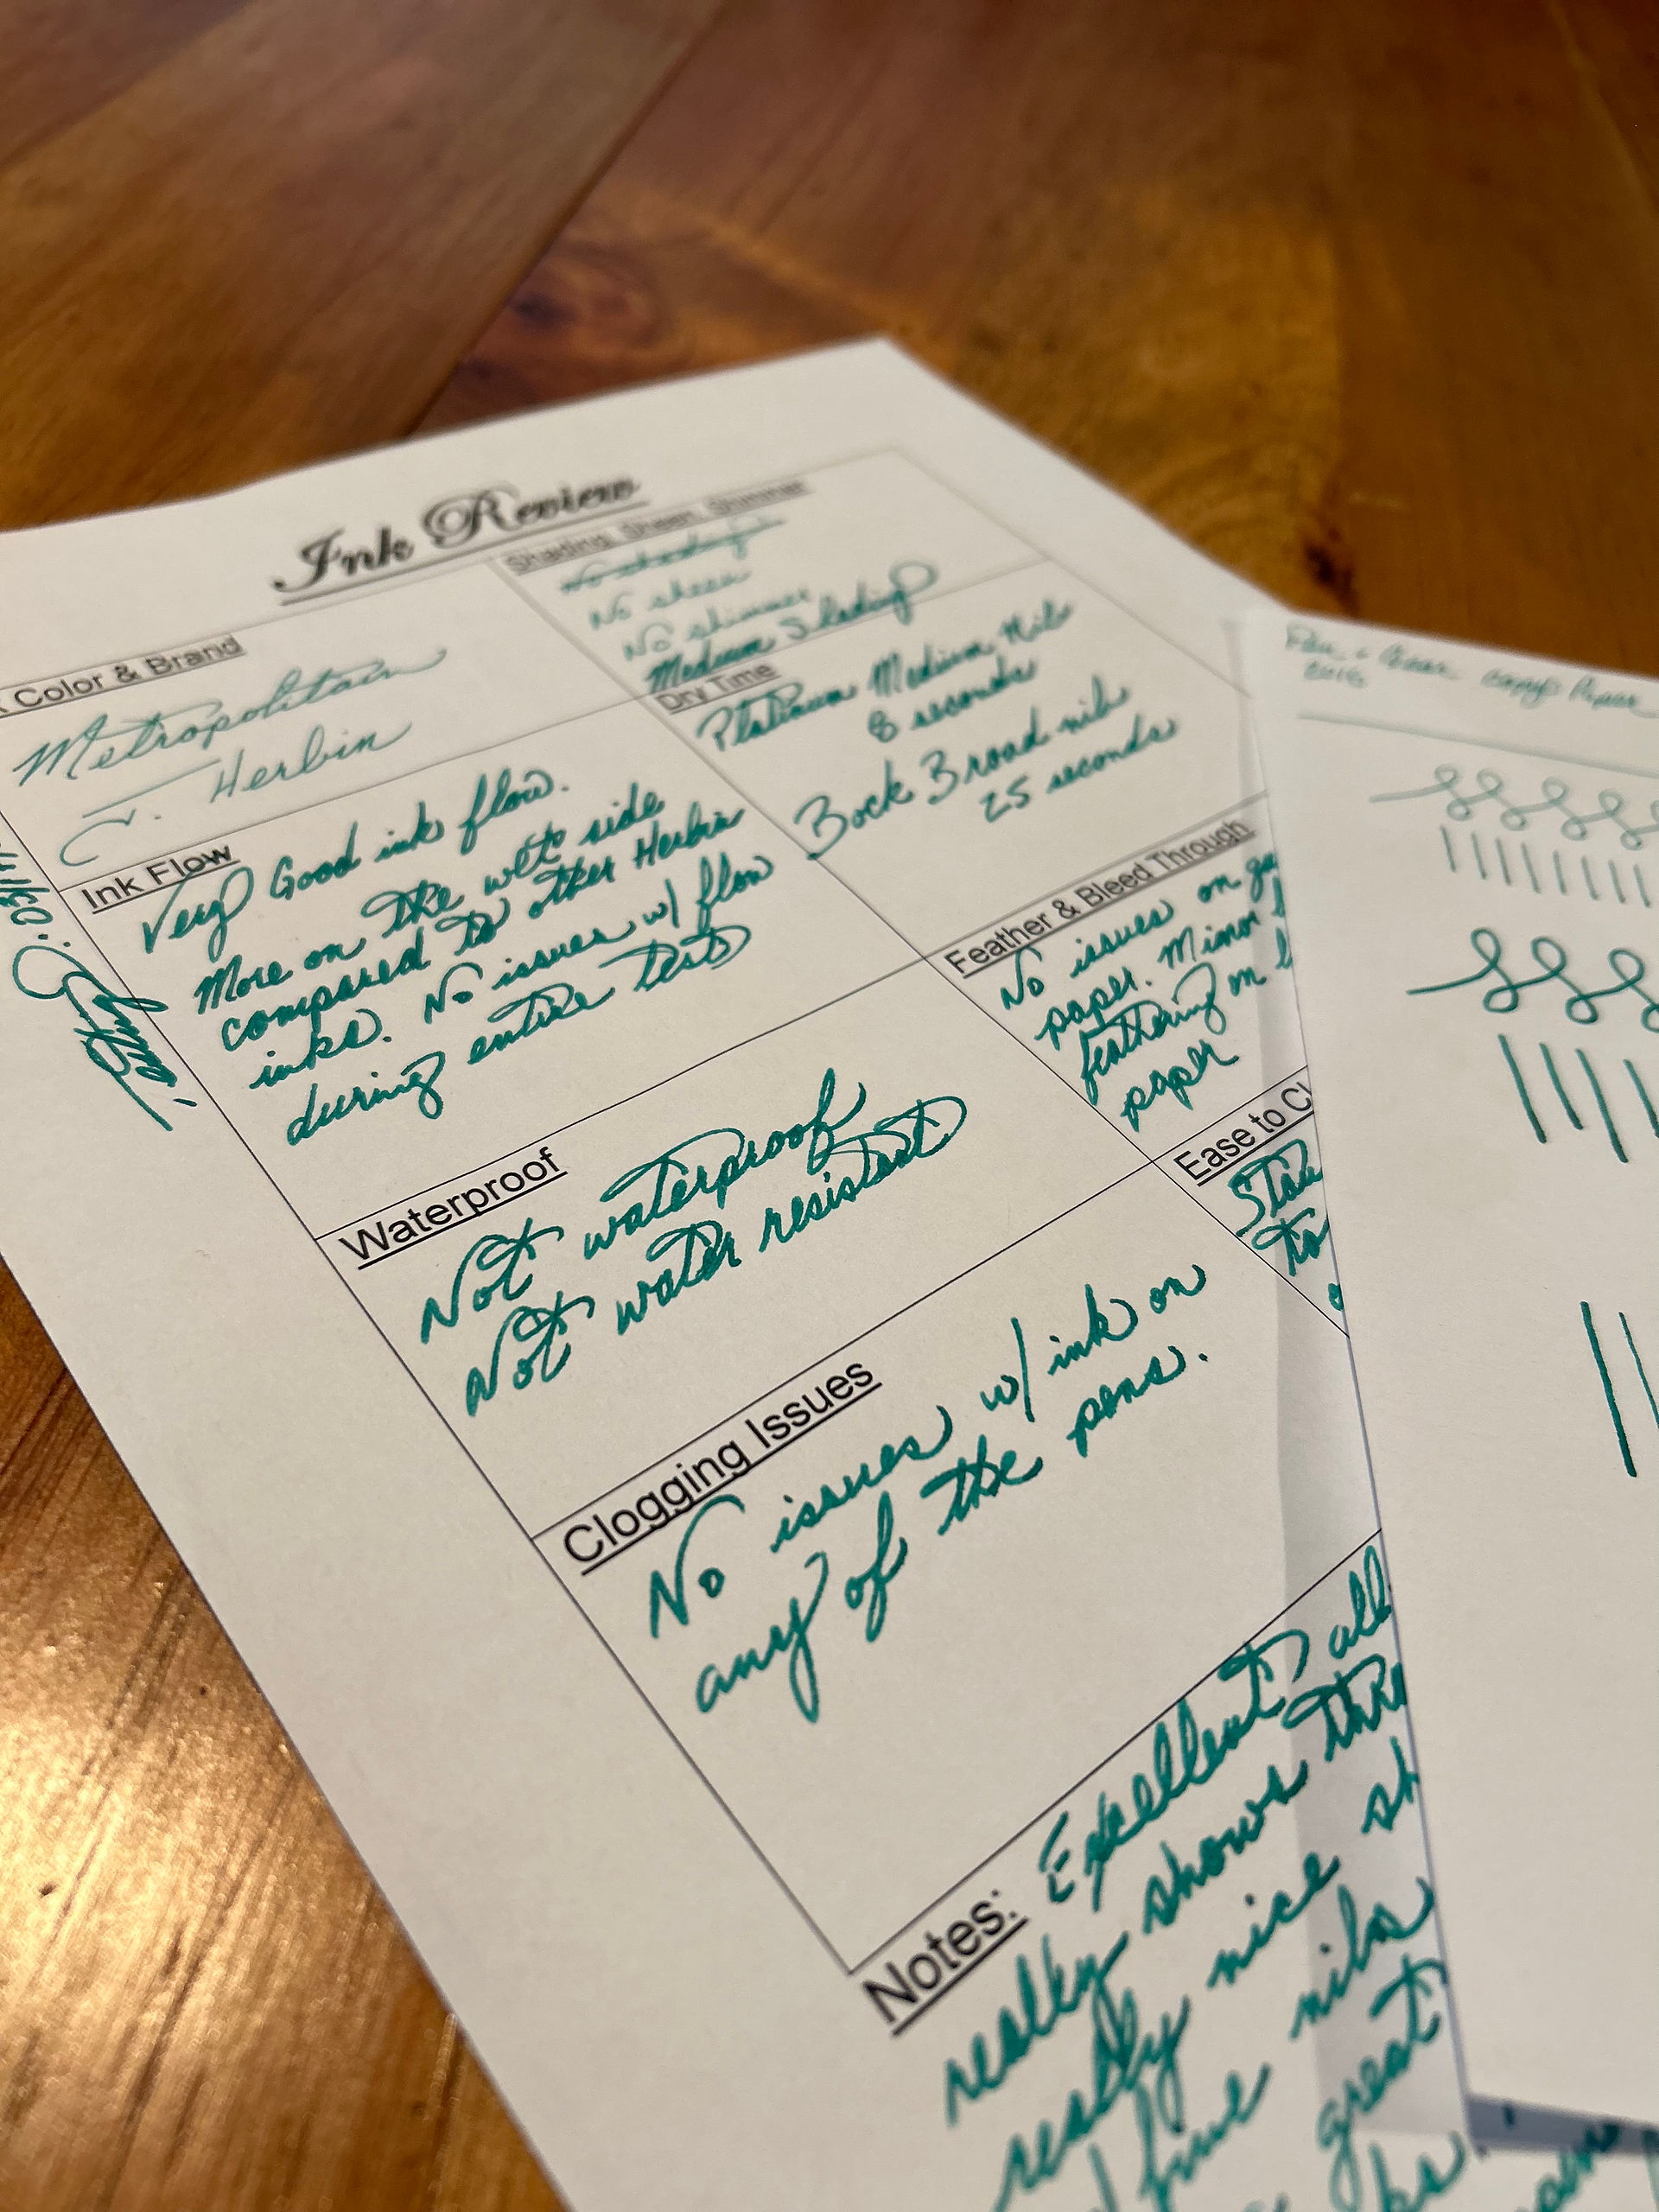 Ink Review
Color & Brand
Metropolitain
J. Herbin
Shading, Sheen, Shimmer
No shading
No sheen
No shimmer
Medium Shading
Ink Flow
Very Good ink flow.
More on the wet side
compared to other Herbin
inks. No issues w/ flow
during entire test
Dry Time
Platinum Medium Nib
8 seconds
Bock Broad nib
25 seconds
Waterproof
Not waterproof
Not water resistant
Feather & Bleed Through
No issues on
paper. Minor
feathering on
paper
Clogging Issues
No issues w/ ink on
any of the pens.
Ease to
to
Notes: Excellent all
really shows
really nice sh
fine nibs
great
copy Paper